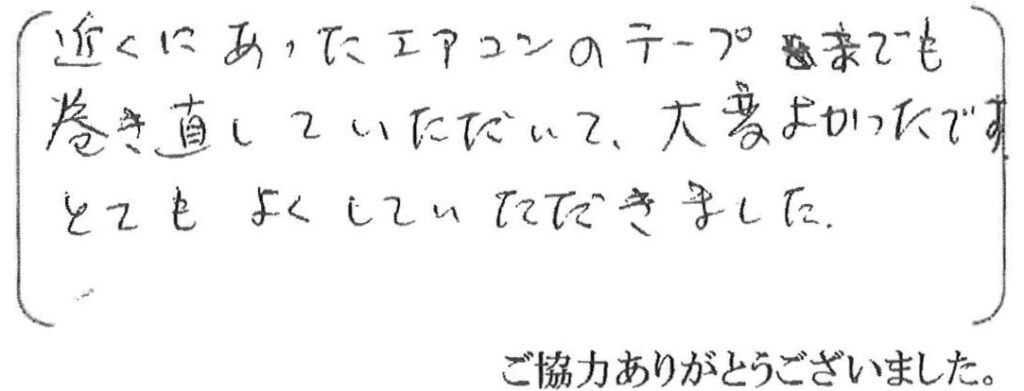 近くにあったエアコンのテープまでも
巻き直していただいて、大変よかったです.
とてもよくしていただきました.
ご協力ありがとうございました。